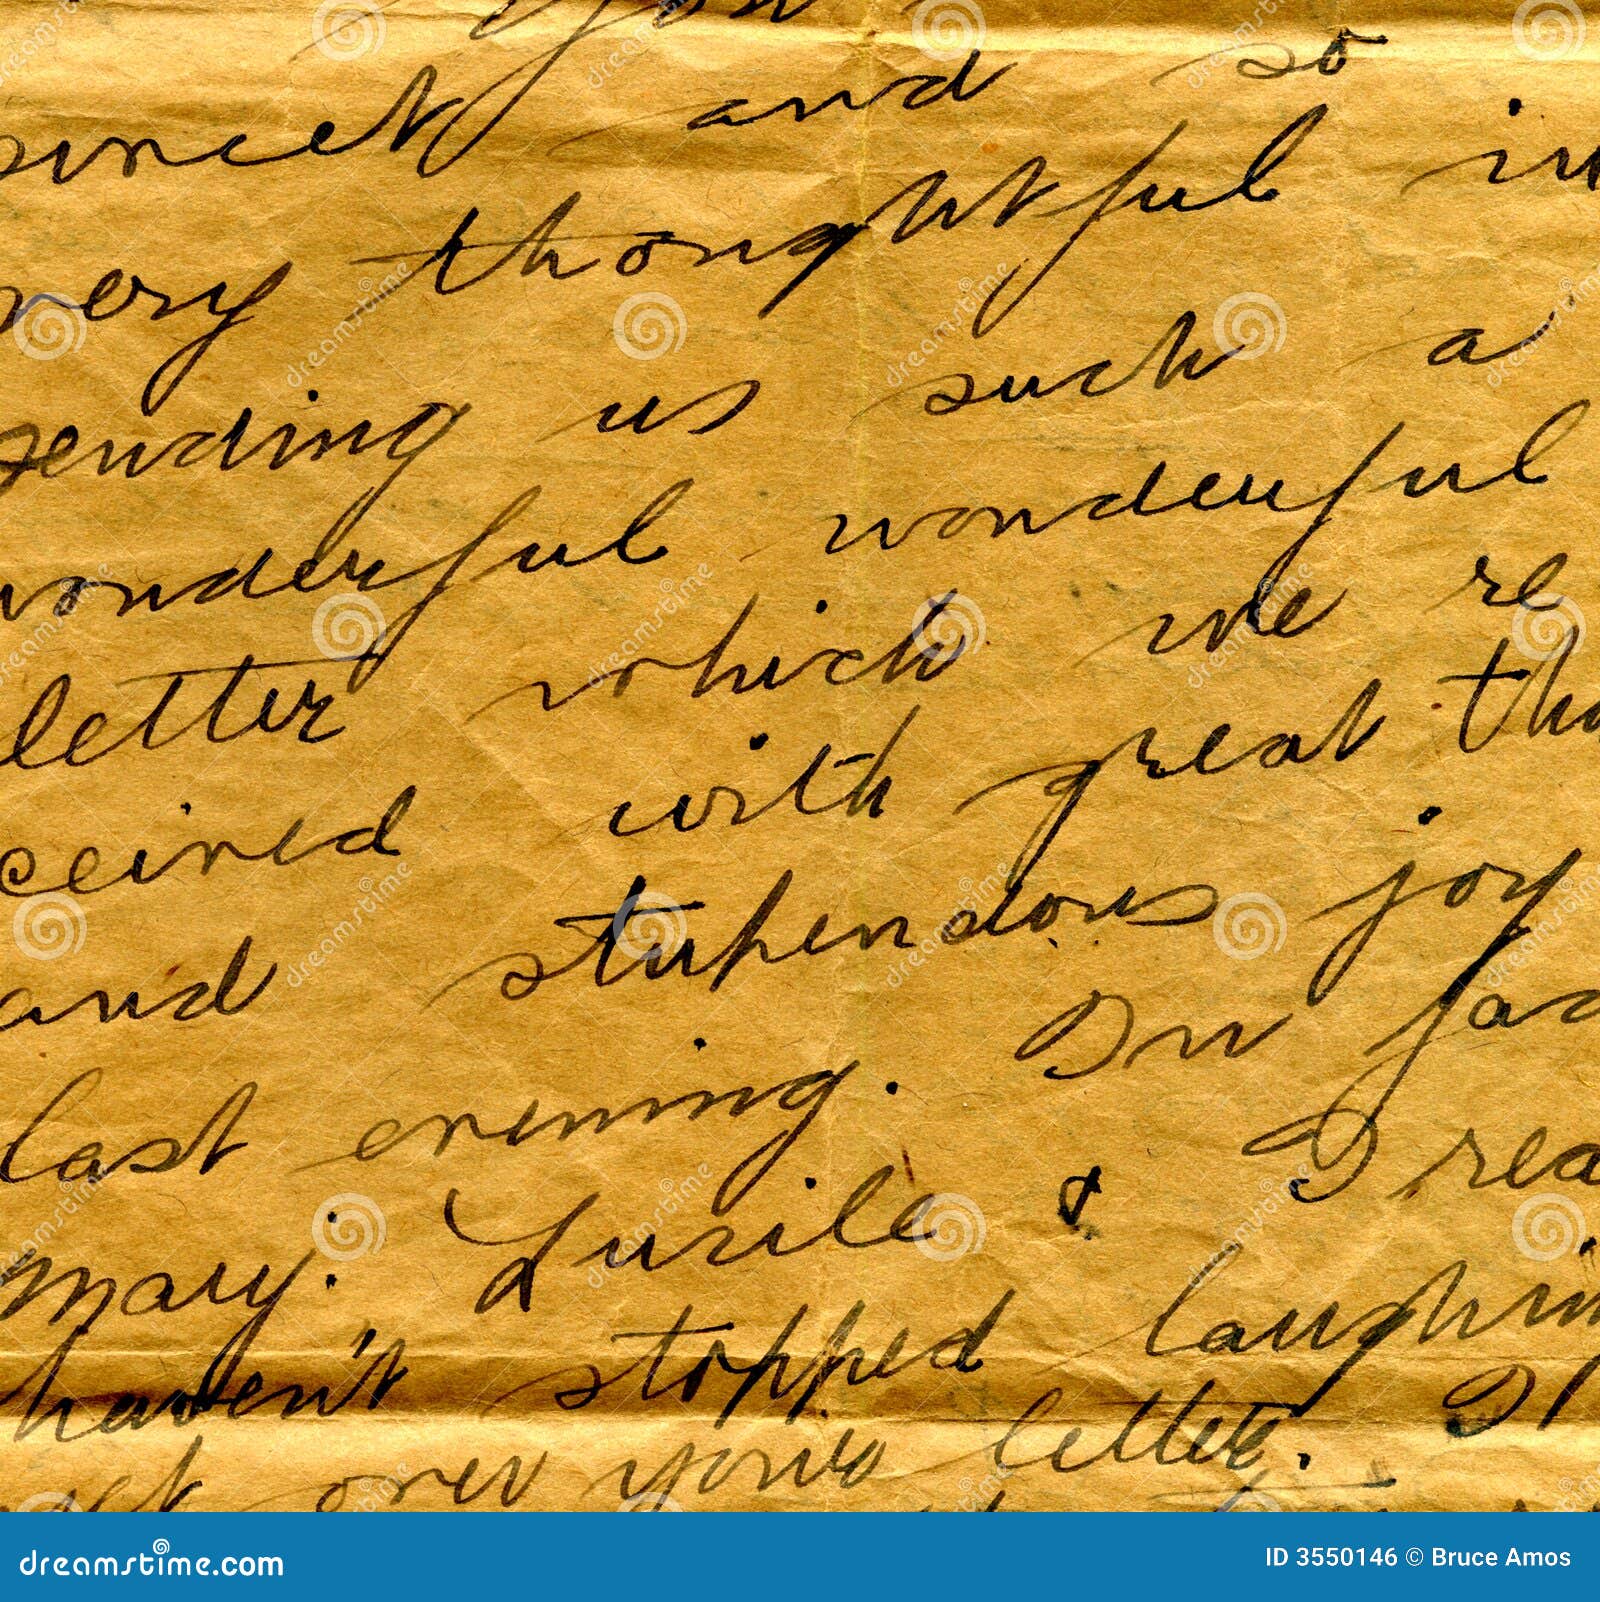 sweet and so
very thoughtful in
sending us such a
wonderful wonderful
letter which we re
ceived with great tho
and stupendous joy
last evening. In fac
mary. Lucile & I rea
haven't stopped laughin
yet over your letter. I
dreamstime.com ID 3550146 © Bruce Amos